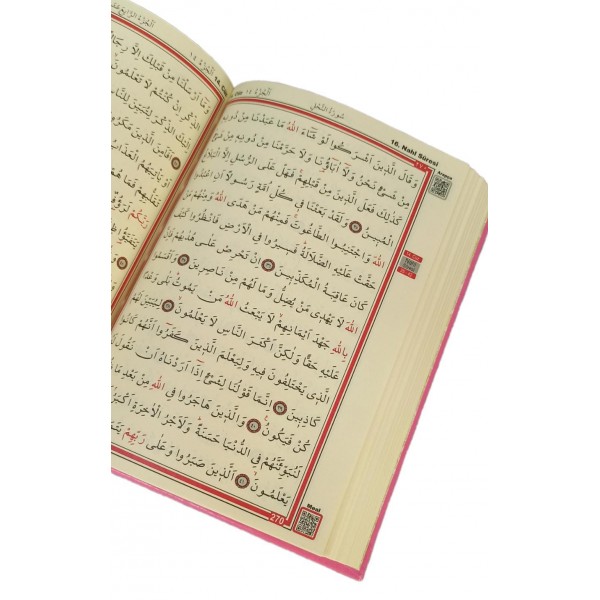 اَلْجُزْءُ الرَّابِعَ عَشَرَ
اَلْجُزْءُ ١٤
وَمَٓا اَرْسَلْنَا مِنْ قَبْلِكَ اِلَّا رِجَالًا
الذِّكْرِ اِنْ كُنْتُمْ لَا تَعْلَمُونَ
الذِّكْرَ لِتُبَيِّنَ لِلنَّاسِ
اَفَاَمِنَ الَّذ۪ينَ مَكَرُوا
سُورَةُ النَّحْلِ
16. Nahl Sûresi
وَقَالَ الَّذ۪ينَ اَشْرَكُوا لَوْ شَٓاءَ اللّٰهُ مَا عَبَدْنَا مِنْ دُونِه۪
مِنْ شَيْءٍ نَحْنُ وَلَٓا اٰبَٓاؤُ۬نَا وَلَا حَرَّمْنَا مِنْ دُونِه۪ مِنْ شَيْءٍ
كَذٰلِكَ فَعَلَ الَّذ۪ينَ مِنْ قَبْلِهِمْ فَهَلْ عَلَى الرُّسُلِ اِلَّا الْبَلَاغُ
الْمُب۪ينُ ٣٥ وَلَقَدْ بَعَثْنَا ف۪ي كُلِّ اُمَّةٍ رَسُولًا اَنِ اعْبُدُوا
اللّٰهَ وَاجْتَنِبُوا الطَّاغُوتَ فَمِنْهُمْ مَنْ هَدَى اللّٰهُ وَمِنْهُمْ مَنْ
حَقَّتْ عَلَيْهِ الضَّلَالَةُ فَس۪يرُوا فِي الْاَرْضِ فَانْظُرُوا كَيْفَ
كَانَ عَاقِبَةُ الْمُكَذِّب۪ينَ ٣٦ اِنْ تَحْرِصْ عَلٰى هُدٰيهُمْ فَاِنَّ
اللّٰهَ لَا يَهْد۪ي مَنْ يُضِلُّ وَمَا لَهُمْ مِنْ نَاصِر۪ينَ ٣٧ وَاَقْسَمُوا
بِاللّٰهِ جَهْدَ اَيْمَانِهِمْ لَا يَبْعَثُ اللّٰهُ مَنْ يَمُوتُ بَلٰى وَعْدًا
عَلَيْهِ حَقًّا وَلٰكِنَّ اَكْثَرَ النَّاسِ لَا يَعْلَمُونَ ٣٨ لِيُبَيِّنَ لَهُمُ
الَّذ۪ي يَخْتَلِفُونَ ف۪يهِ وَلِيَعْلَمَ الَّذ۪ينَ كَفَرُٓوا اَنَّهُمْ كَانُوا
كَاذِب۪ينَ ٣٩ اِنَّمَا قَوْلُنَا لِشَيْءٍ اِذَٓا اَرَدْنَاهُ اَنْ نَقُولَ لَهُ
كُنْ فَيَكُونُ ٤٠ وَالَّذ۪ينَ هَاجَرُوا فِي اللّٰهِ مِنْ بَعْدِ مَا
لَنُبَوِّئَنَّهُمْ فِي الدُّنْيَا حَسَنَةً وَلَاَجْرُ الْاٰخِرَةِ اَكْبَرُ
يَعْلَمُونَ ٤١ اَلَّذ۪ينَ صَبَرُوا وَعَلٰى رَبِّهِمْ
270
Meal